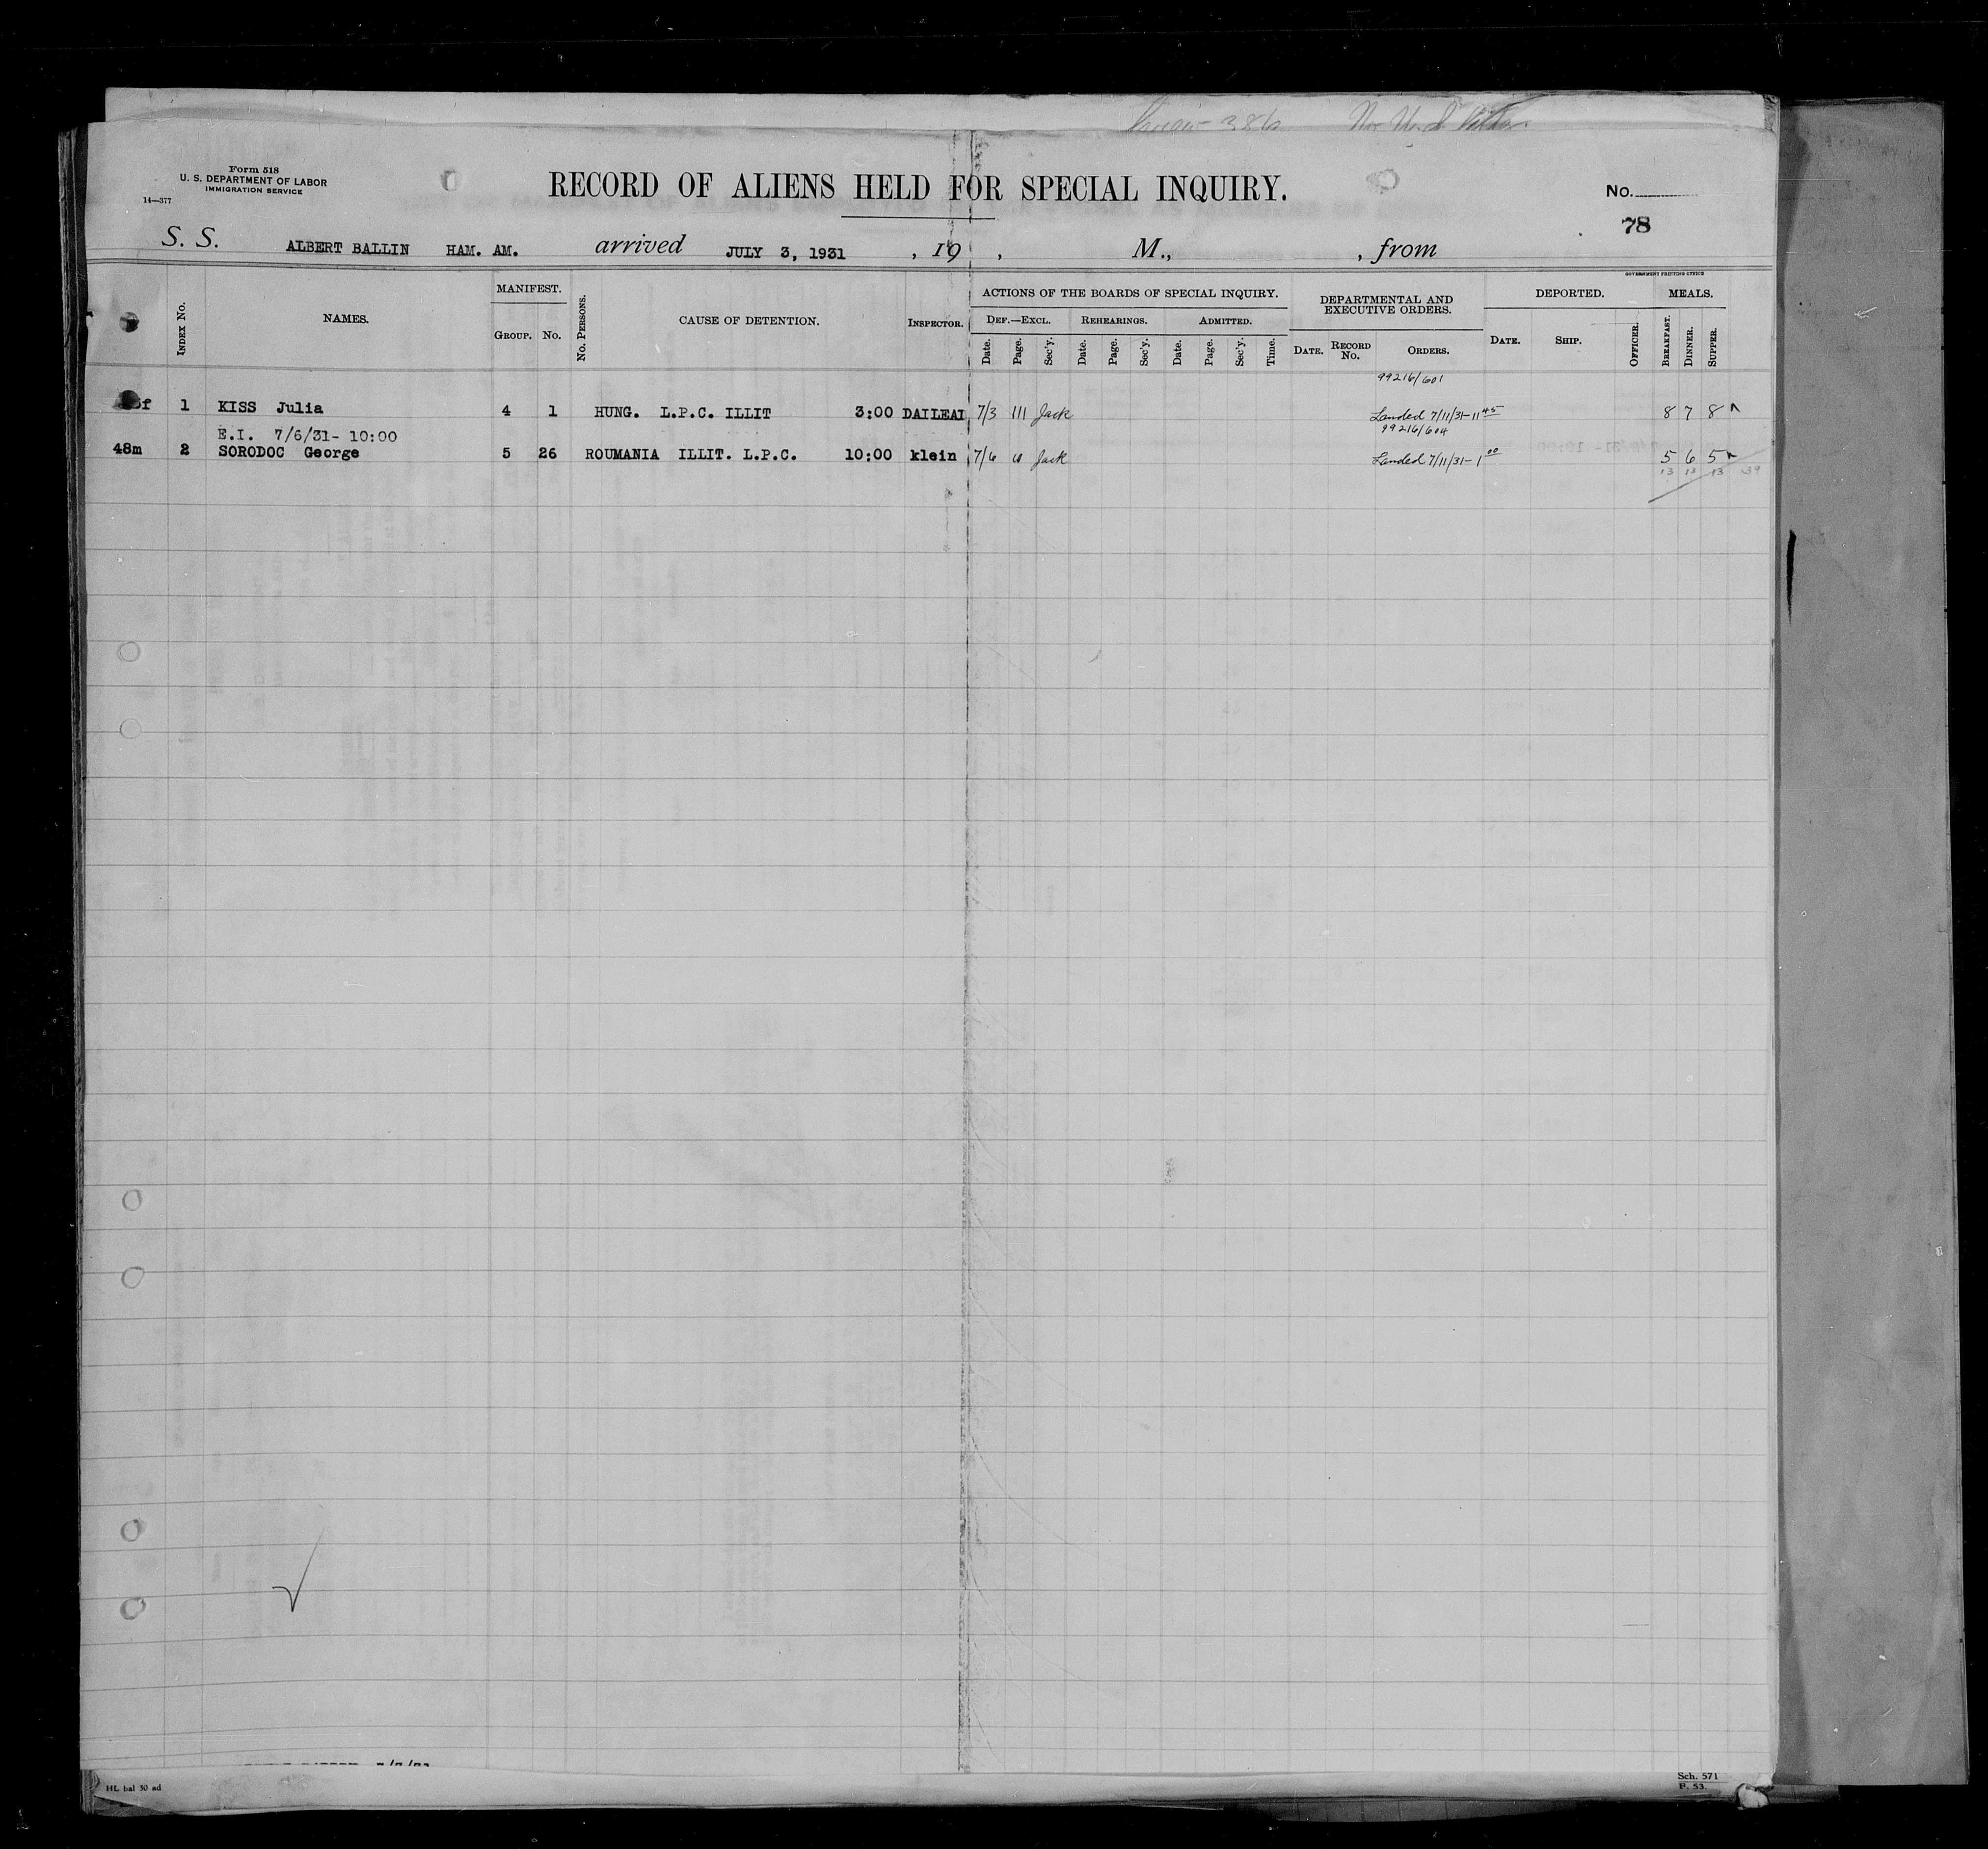 Form 518
U. S. DEPARTMENT OF LABOR
IMMIGRATION SERVICE
14—377
RECORD OF ALIENS HELD FOR SPECIAL INQUIRY.
No.
78
S. S. ALBERT BALLIN HAM. AM. arrived JULY 3, 1931 , 19 , M., , from
GOVERNMENT PRINTING OFFICE
INDEX No. NAMES. MANIFEST. GROUP. No. No. PERSONS. CAUSE OF DETENTION. INSPECTOR. ACTIONS OF THE BOARDS OF SPECIAL INQUIRY. DEPARTMENTAL AND EXECUTIVE ORDERS. DEPORTED. MEALS.
DEF.—EXCL. REHEARINGS. ADMITTED.
Date. Page. Sec'y. Date. Page. Sec'y. Date. Page. Sec'y. Time. DATE. RECORD No. ORDERS. DATE. SHIP. OFFICER. BREAKFAST. DINNER. SUPPER.
99216/601
1 KISS Julia 4 1 HUNG. L.P.C. ILLIT 3:00 DAILEAI 7/3 111 Jack Landed 7/11/31-11 45 8 7 8
E.I. 7/6/31- 10:00
99216/604
48m 2 SORODOC George 5 26 ROUMANIA ILLIT. L.P.C. 10:00 klein 7/6 Jack Landed 7/11/31-1 00 5 6 5
13 13 13 39
HL bal 30 ad
Sch. 571
F. 53.